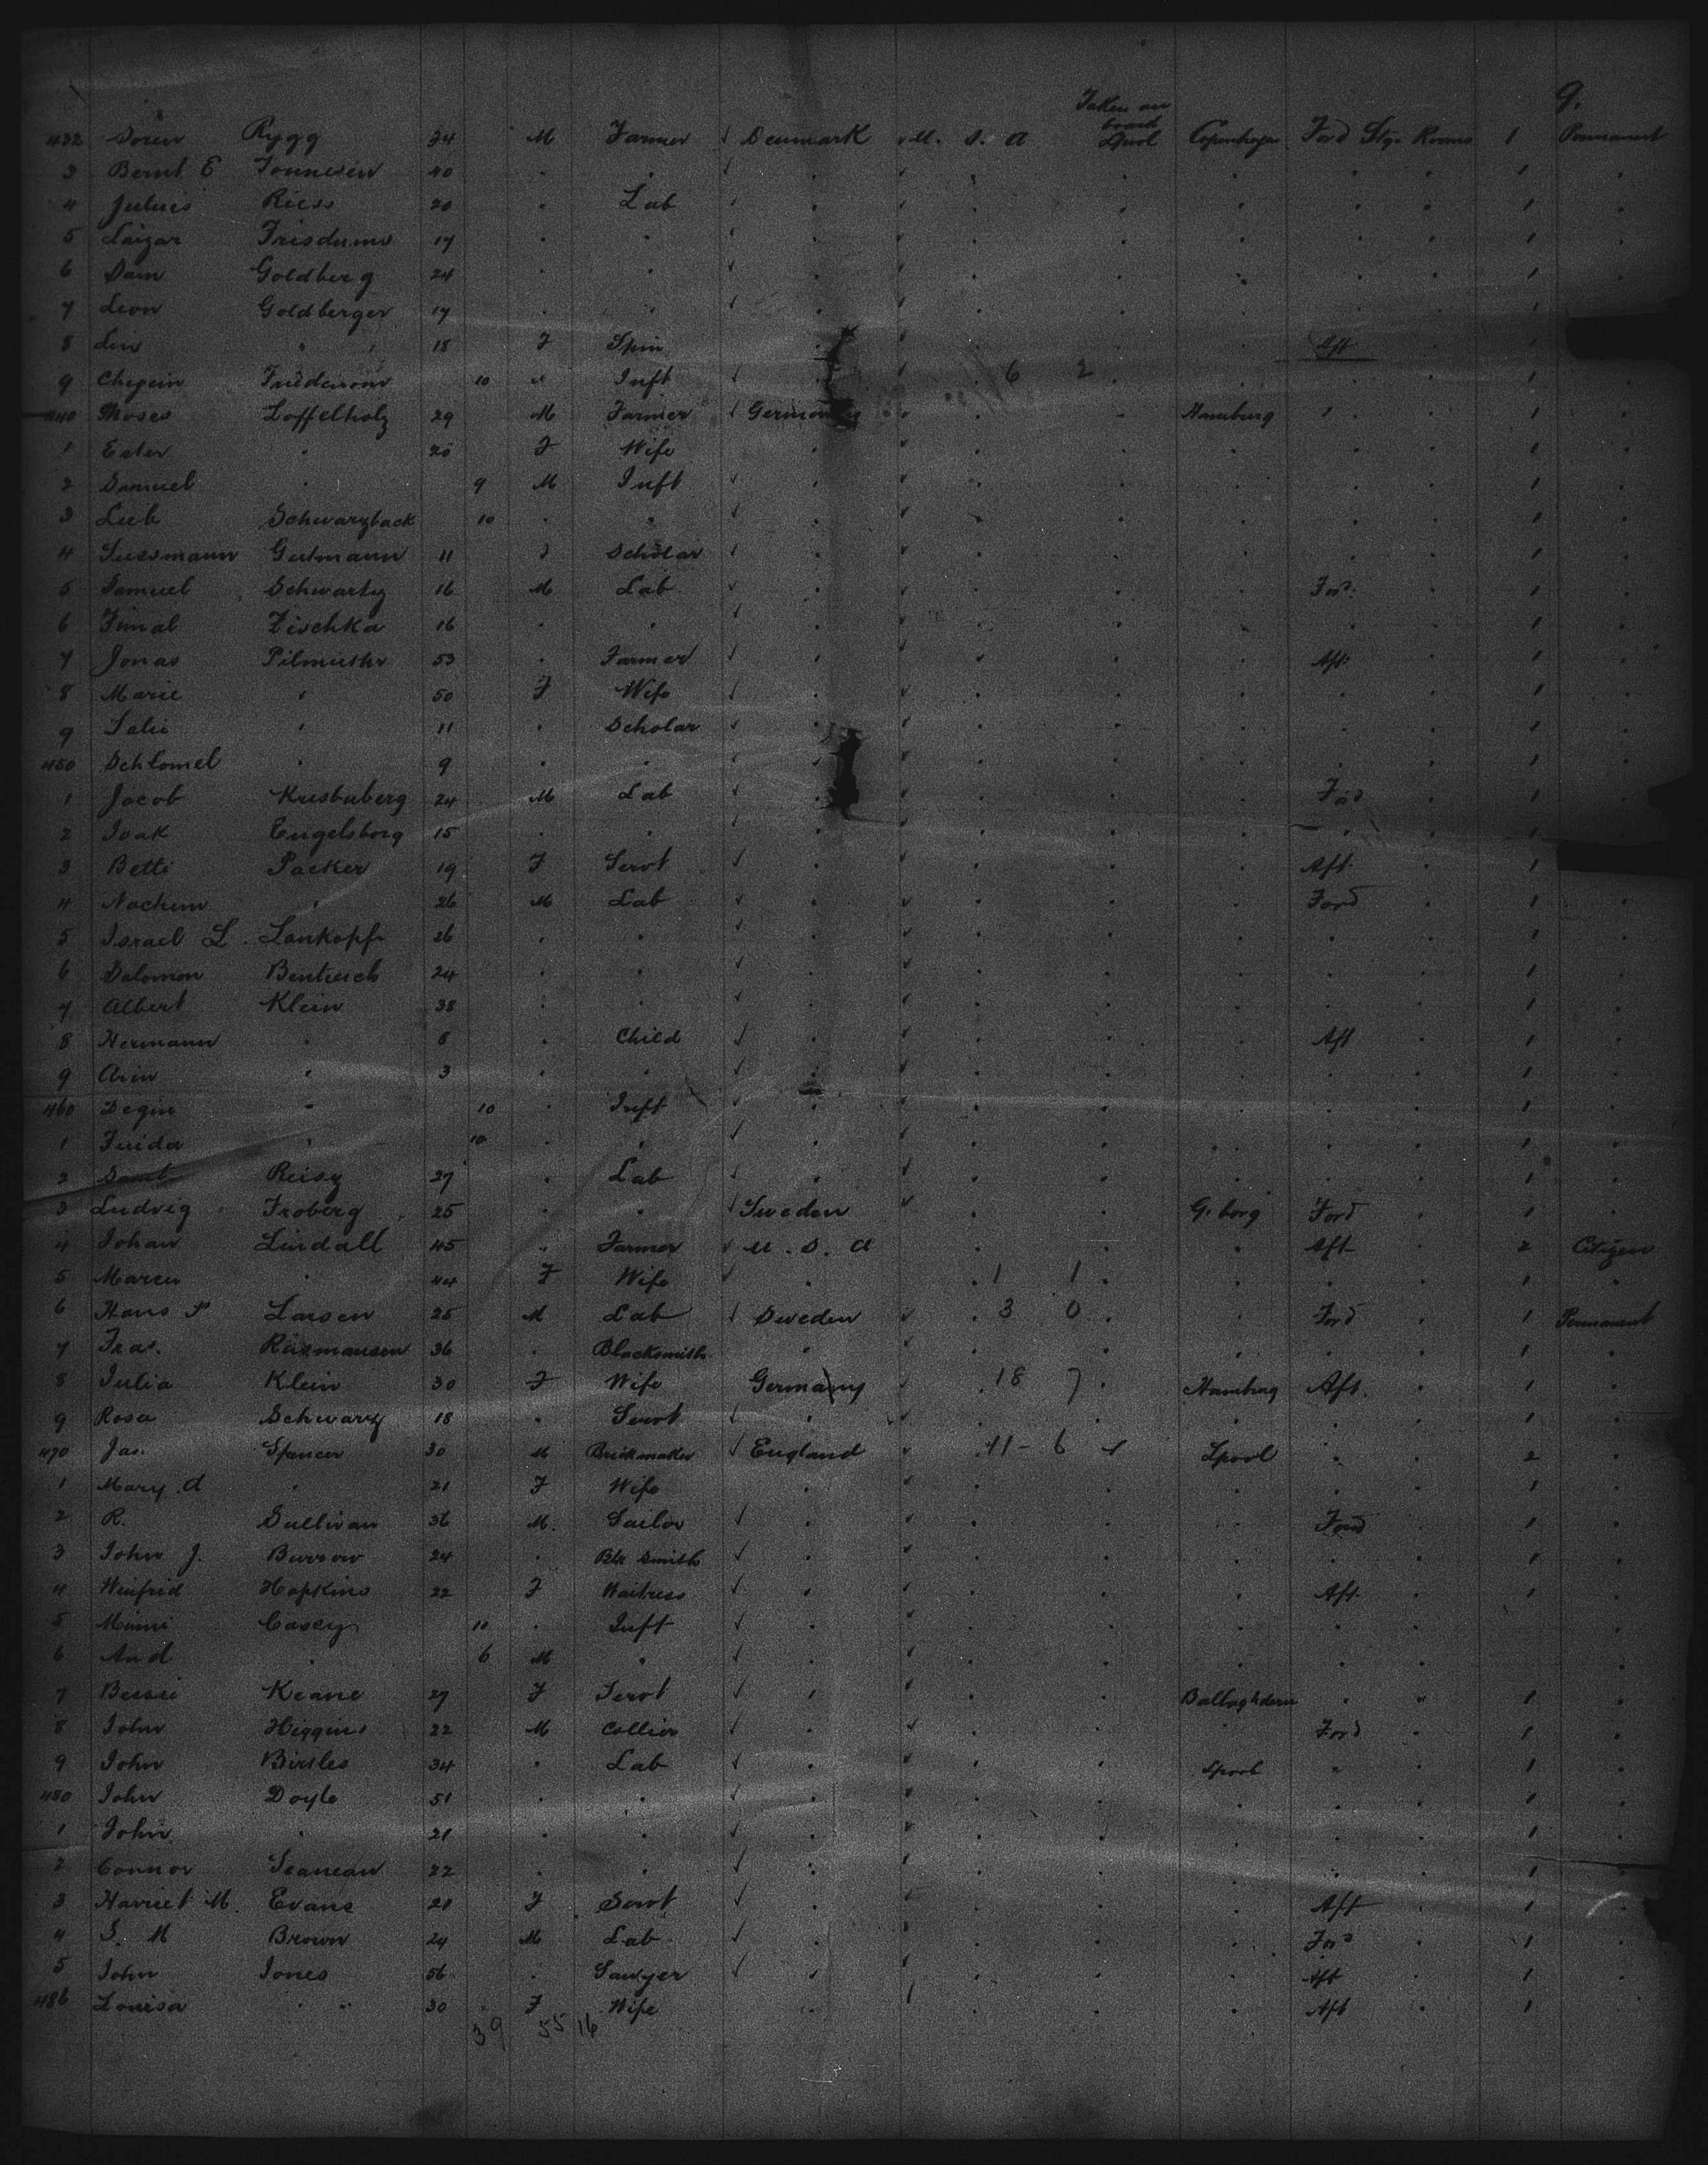 9.
Taken on board Lpool
432 Soren Rygg 24 M Farmer Denmark U. S. A Copenhagen Ford Stge Rooms 1 Permanent
3 Bernt E Tonnesen 40 . . 1
4 Julius Riess 20 . Lab 1
5 Laizar 17 . . 1
6 Sam Goldberg 24 . . 1
7 Leon Goldberger 17 . . 1
8 " 18 F Spin Aft 1
9 10 " Inft 6 2 1
440 Moses Loffelholz 29 M Farmer Germany Hamburg 1
1 Ester " 20 F Wife 1
2 Samuel " 9 M Inft 1
3 Lieb Schwarzback 10 . " 1
4 Sussmann Gutmann 11 Scholar 1
5 Samuel Schwartz 16 M Lab Ford 1
6 Zischka 16 . . 1
7 Jonas 53 . Farmer Aft 1
8 Marie " 50 F Wife 1
9 Salie " 11 . Scholar 1
450 Schlomel " 9 . . 1
1 Jacob 24 M Lab Ford 1
2 Isak Engelsborg 15 . . 1
3 Betti Packer 19 F Servt Aft 1
4 Nachum " 26 M Lab Ford 1
5 Israel L. Lankopf 26 . . 1
6 Salomon 24 . . 1
7 Albert Klein 38 . . 1
8 Hermann " . Child Aft 1
9 " 3 . . 1
460 " 10 . Inft 1
1 Frida " 10 . " 1
2 27 . Lab 1
3 Ludvig Froberg 25 . . Sweden G. borg Ford 1
4 Johan Lindall 45 " Farmer U. S. A Aft 2 Citizen
5 Maren " 44 F Wife 1 1 1 "
6 Hans P Larsen 25 M Lab Sweden 3 0 Ford 1 Permanent
7 Fras. Rasmansen 36 . Blacksmith " 1
8 Julia Klein 30 F Wife Germany 18 7 Hamburg Aft. 1
9 Rosa Schwarz 18 " Servt 1
470 Jas. Spencer 30 M Brickmaker England 11 - 6 Lpool 2
1 Mary A " 21 F Wife 1
2 R. Sullivan 36 M. Sailor Ford 1
3 John J. Burrow 24 . Blk Smith 1
4 Winfrid Hopkins 22 F Waitress Aft. 1
5 Casey 10 . Inft
6 And " 6 M "
7 Bessie Keane 27 F Servt Ballaghderin 1
8 John Higgins 22 M Collier Ford 1
9 John Birtles 34 . Lab Lpool 1
480 John Doyle 51 . . 1
1 John " 21 . . 1
2 Connor 22 . . 1
3 Harriet M. Evans 21 F Servt Aft 1
4 S. M Brown 24 M Lab Ford 1
5 John Jones 56 . Sawyer Aft 1
486 Louisa " 30 F Wife Aft 1
39 55 16